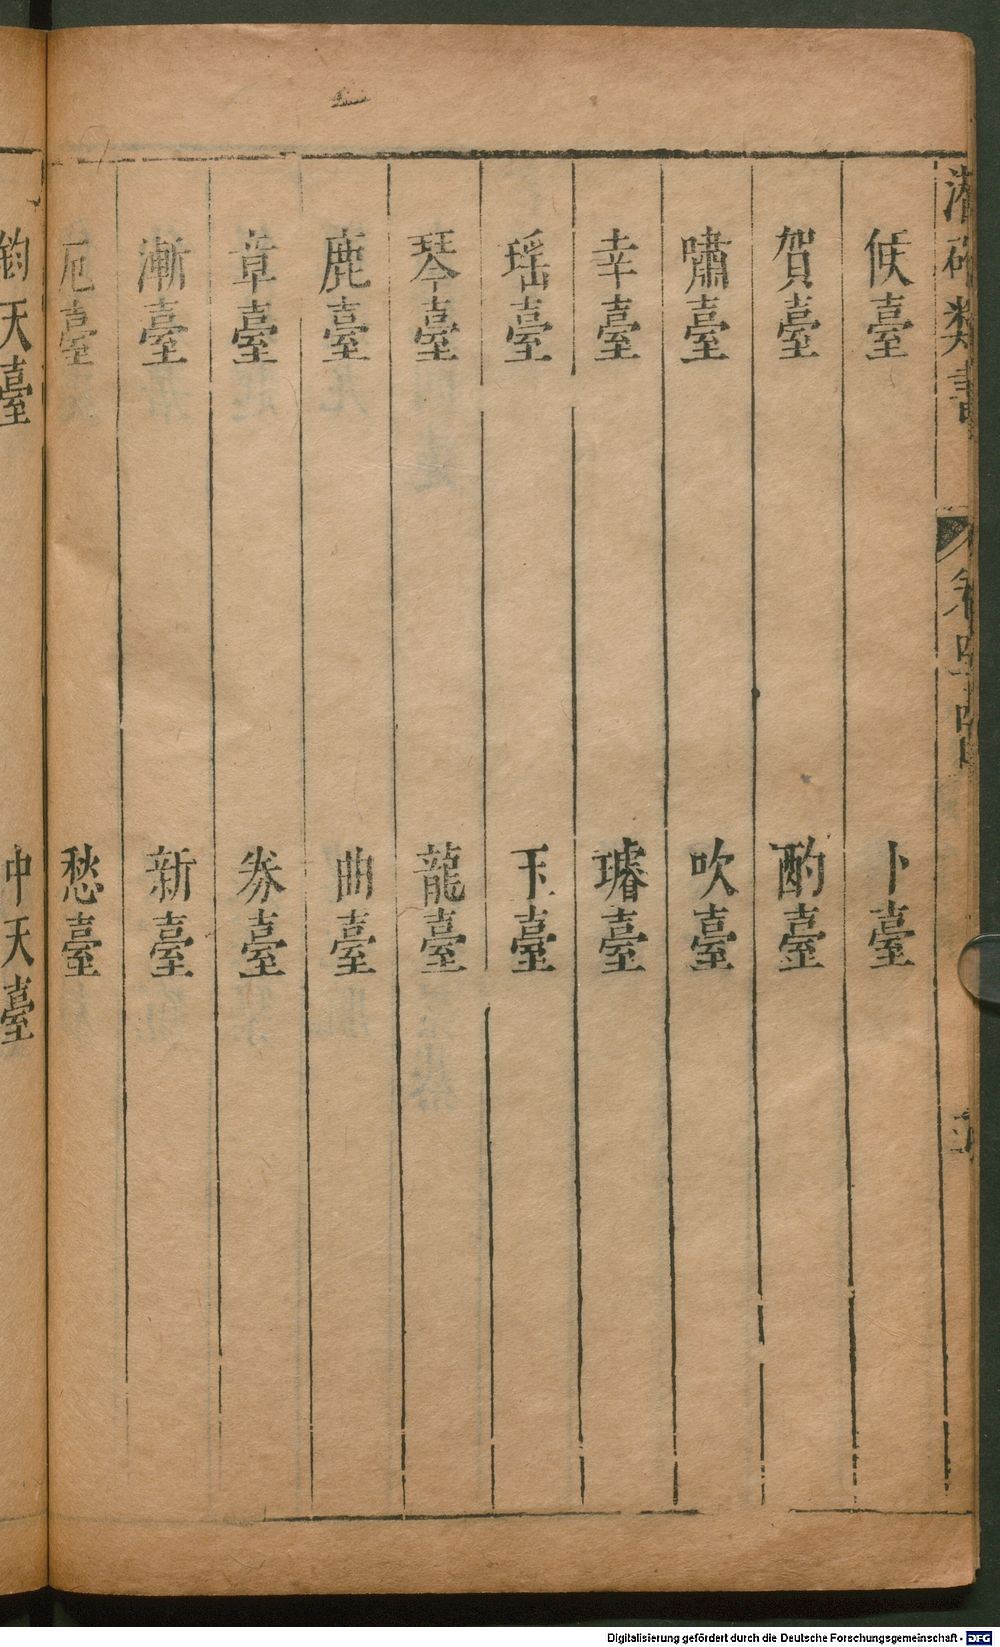 潛確類書 卷 
候臺 卜臺
賀臺 酌臺
嘯臺 吹臺
幸臺 璿臺
瑶臺 玉臺
琴臺 龍臺
鹿臺 曲臺
章臺 
漸臺 新臺
卮臺 愁臺
鈞天臺 中天臺
Digitalisierung gefördert durch die Deutsche Forschungsgemeinschaft - DFG